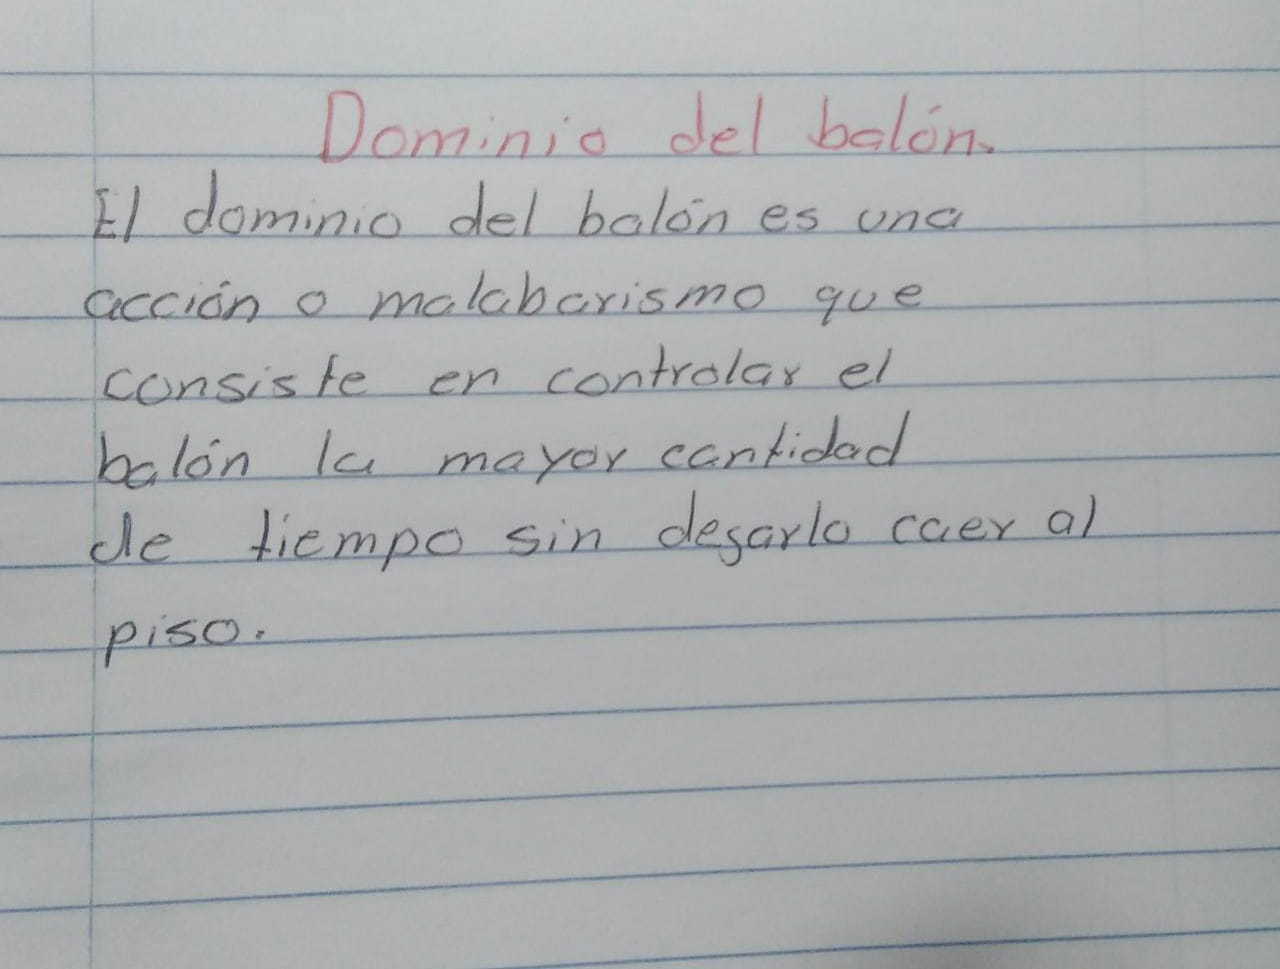 Dominio del balón.
El dominio del balón es una
acción o malabarismo que
consiste en controlar el
balón la mayor cantidad
de tiempo sin desarlo caer al
piso.